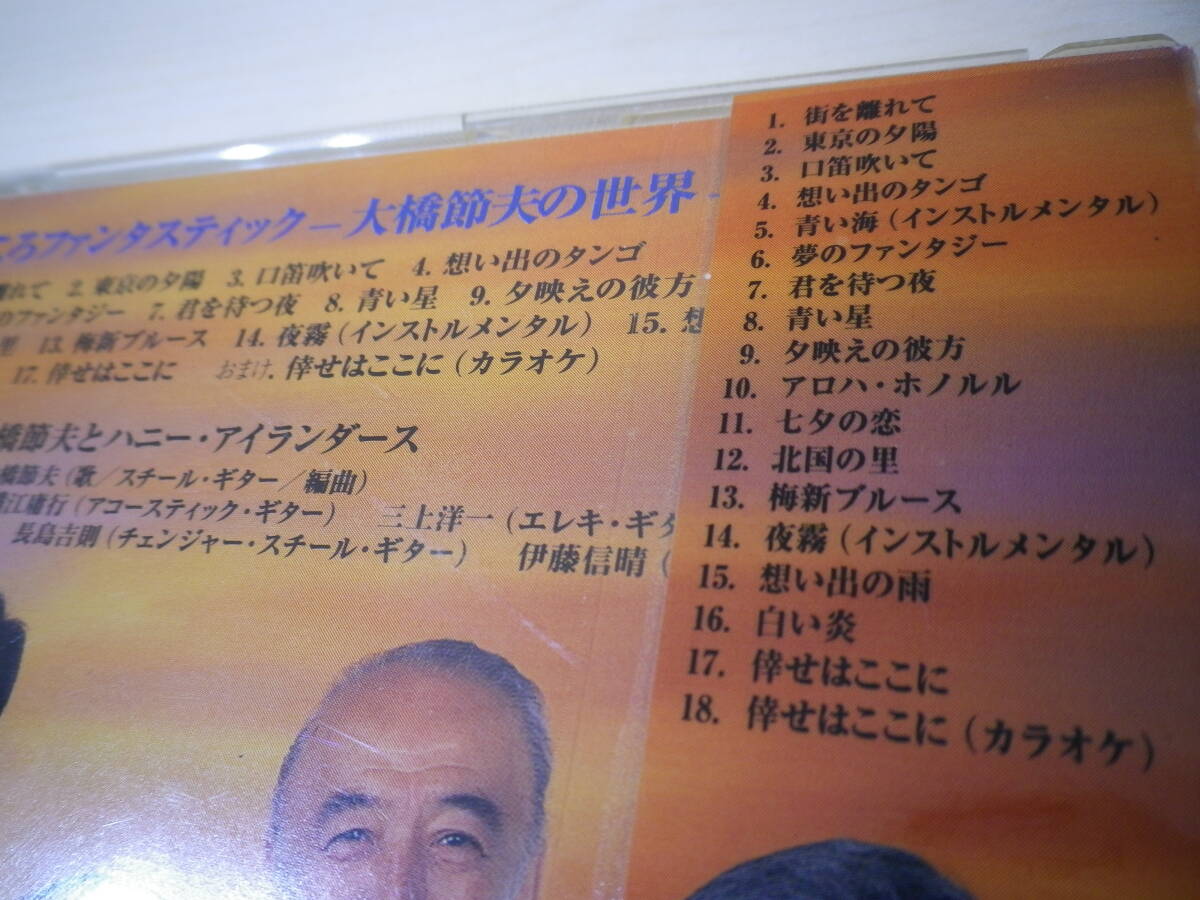 ころファンタスティック ー 大橋節夫の世界 ー
離れて 2. 東京の夕陽 3. 口笛吹いて 4. 想い出のタンゴ
のファンタジー 7. 君を待つ夜 8. 青い星 9. 夕映えの彼方
里 13. 梅新ブルース 14. 夜霧(インストルメンタル) 15. 想
17. 倖せはここに おまけ. 倖せはここに(カラオケ)
橋節夫とハニー・アイランダース
橋節夫(歌/スチール・ギター/編曲)
江庸行(アコースティック・ギター) 三上洋一(エレキ・ギタ
長島吉則(チェンジャー・スチール・ギター) 伊藤信晴(
1. 街を離れて
2. 東京の夕陽
3. 口笛吹いて
4. 想い出のタンゴ
5. 青い海(インストルメンタル)
6. 夢のファンタジー
7. 君を待つ夜
8. 青い星
9. 夕映えの彼方
10. アロハ・ホノルル
11. 七夕の恋
12. 北国の里
13. 梅新ブルース
14. 夜霧(インストルメンタル)
15. 想い出の雨
16. 白い炎
17. 倖せはここに
18. 倖せはここに(カラオケ)